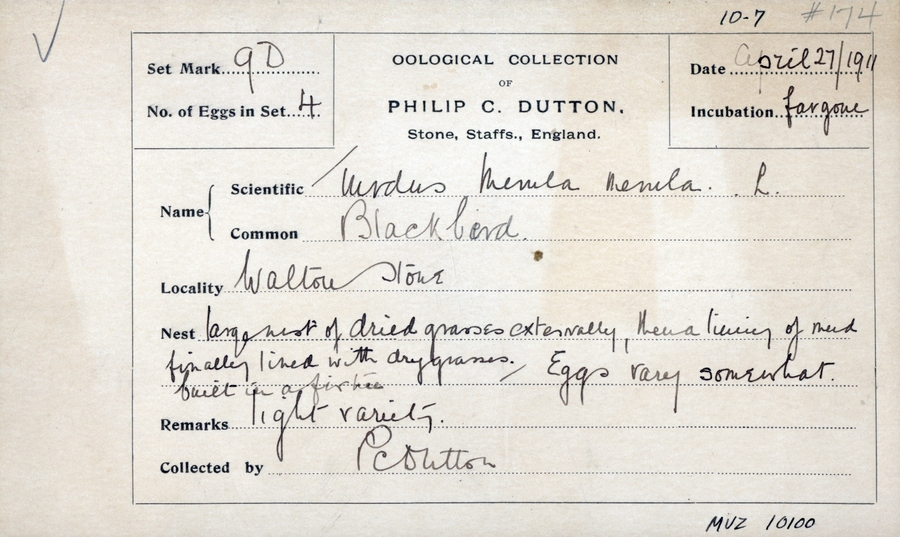 10-7 #174
Set Mark 9D
No. of Eggs in Set 4
OOLOGICAL COLLECTION
OF
PHILIP C. DUTTON,
Stone, Staffs., England.
Date April 27/1911
Incubation fargone
Name
Scientific Turdus Merula merula. L.
Common Blackbird.
Locality Walton Stone
Nest large nest of dried grasses externally, then a lining of mud
finally lined with dry grasses. Eggs vary somewhat.
built in a fir tree
Remarks light variety.
Collected by PC Dutton
MVZ 10100